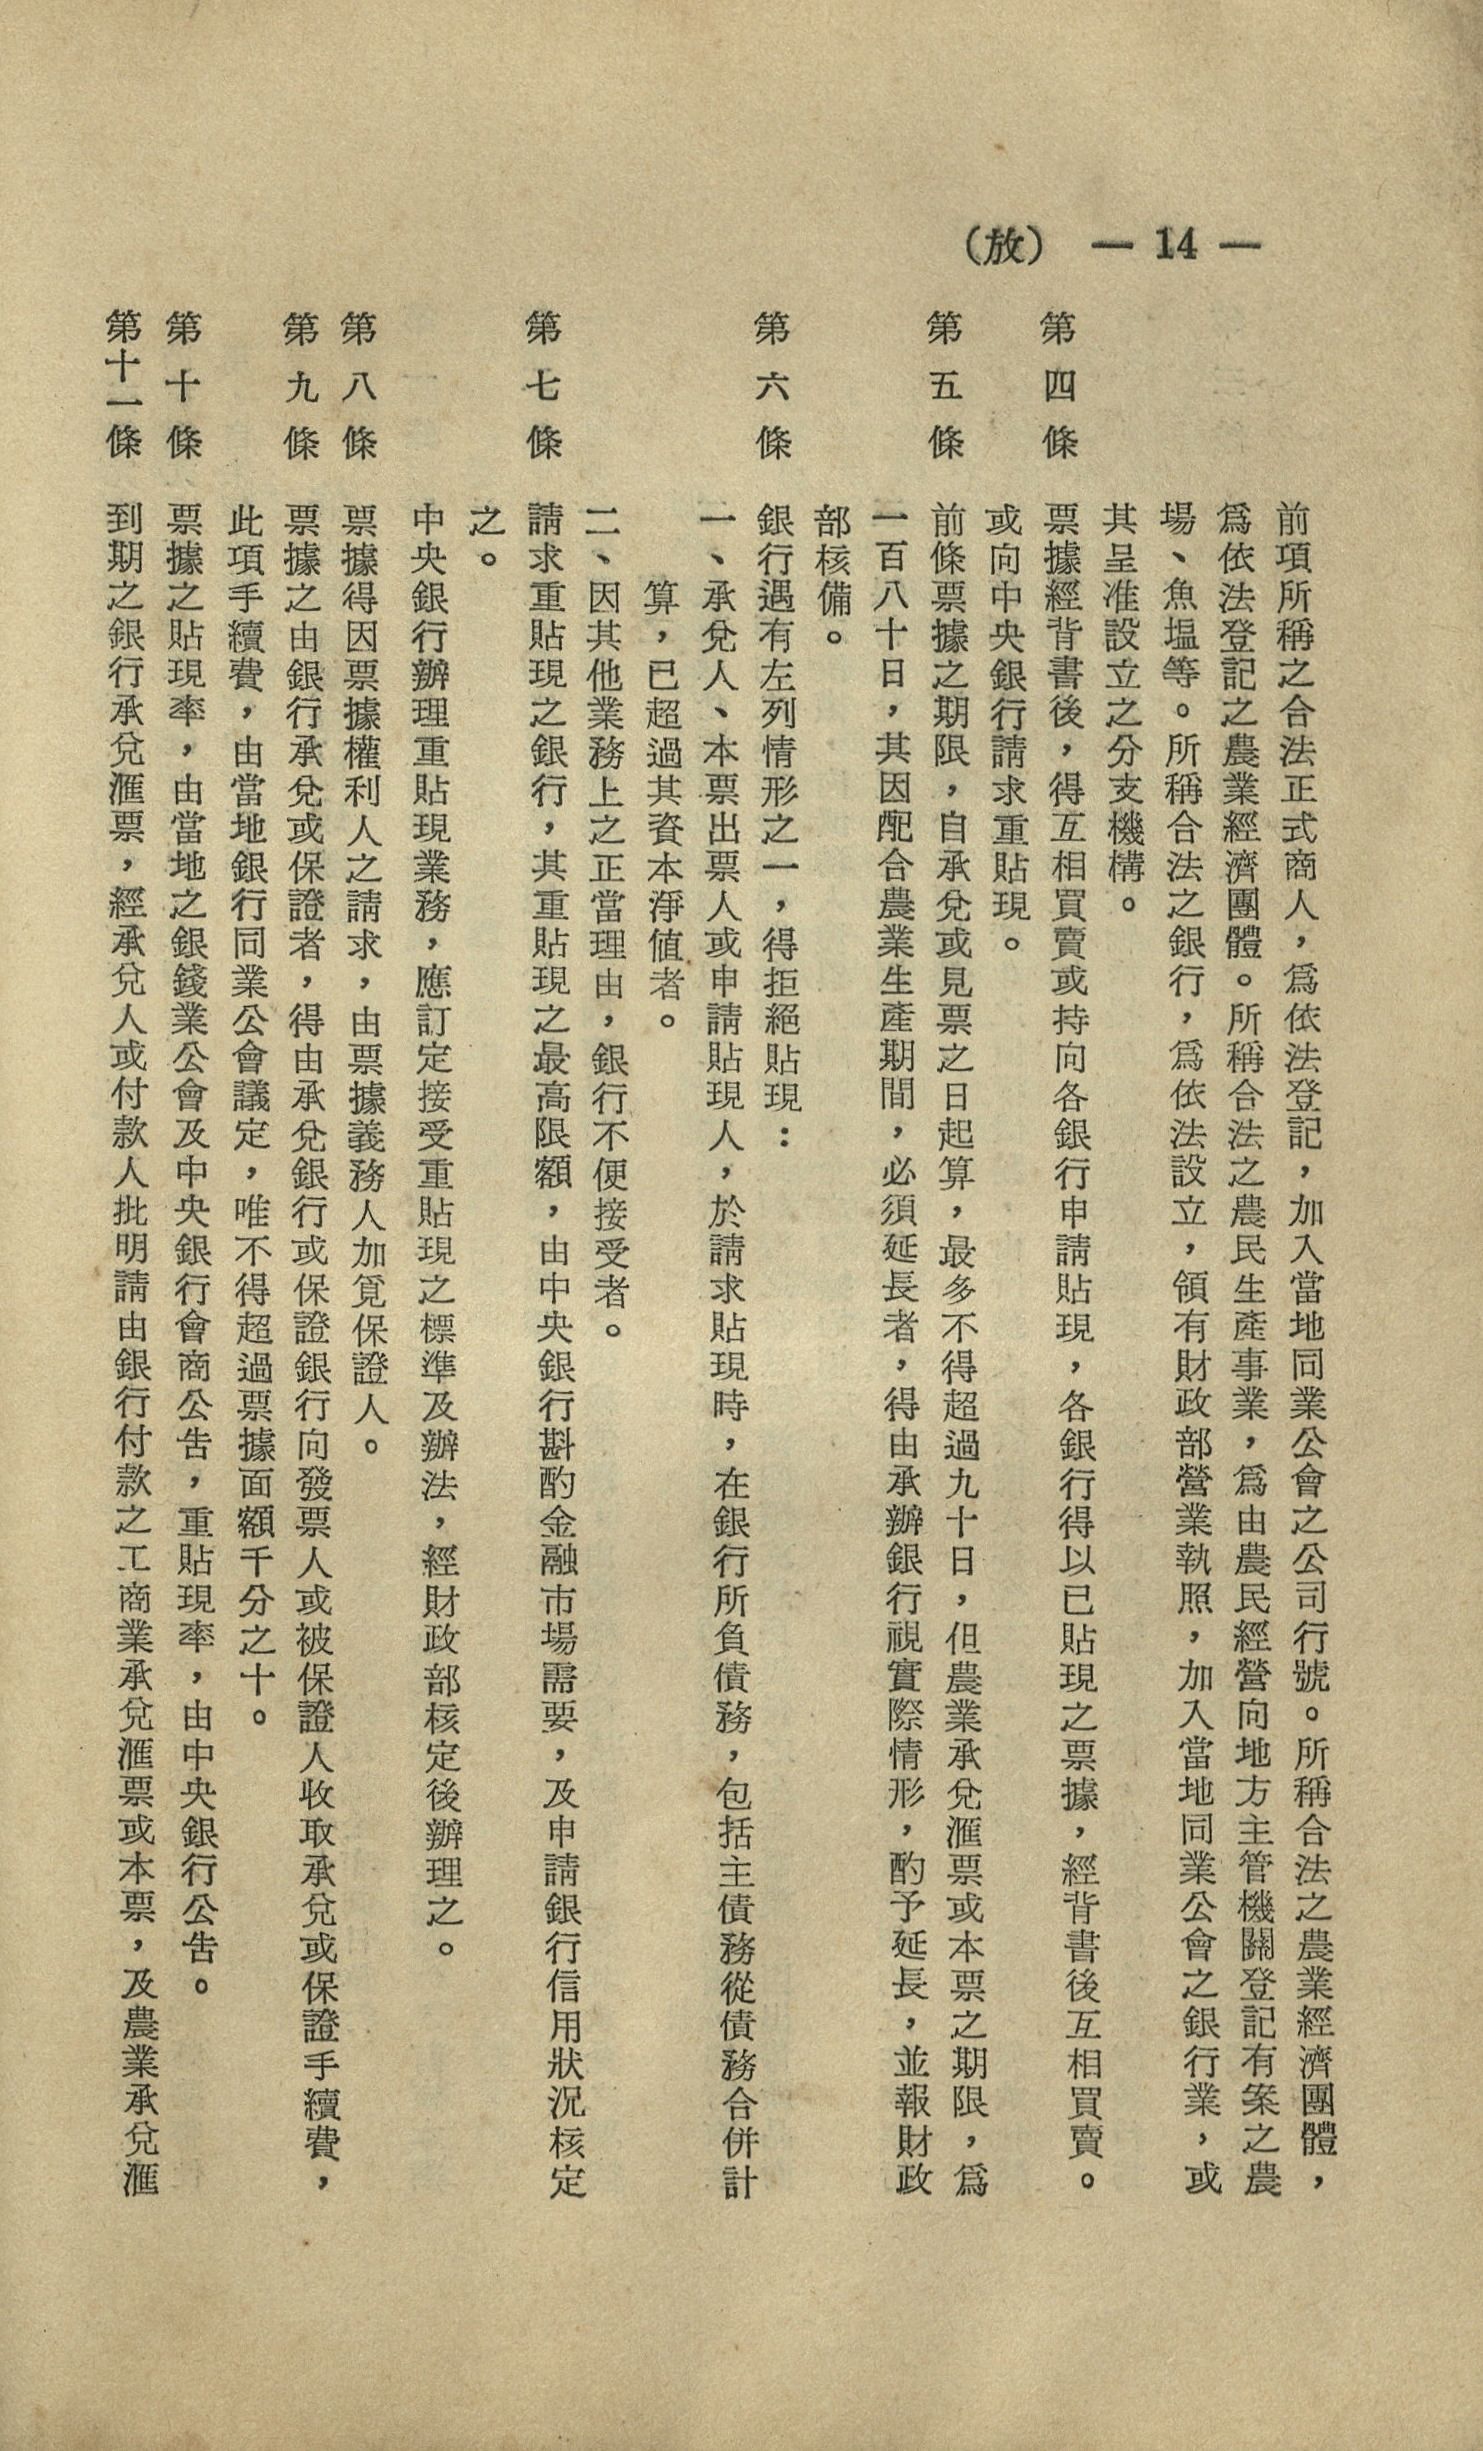 (放) — 14 —
前項所稱之合法正式商人，爲依法登記，加入當地同業公會之公司行號。所稱合法之農業經濟團體，
爲依法登記之農業經濟團體。所稱合法之農民生產事業，爲由農民經營向地方主管機關登記有案之農
場、魚塭等。所稱合法之銀行，爲依法設立，領有財政部營業執照，加入當地同業公會之銀行業，或
其呈准設立之分支機構。
第四條 票據經背書後，得互相買賣或持向各銀行申請貼現，各銀行得以已貼現之票據，經背書後互相買賣。
或向中央銀行請求重貼現。
第五條 前條票據之期限，自承兌或見票之日起算，最多不得超過九十日，但農業承兌滙票或本票之期限，爲
一百八十日，其因配合農業生產期間，必須延長者，得由承辦銀行視實際情形，酌予延長，並報財政
部核備。
第六條 銀行遇有左列情形之一，得拒絕貼現：
一、承兌人、本票出票人或申請貼現人，於請求貼現時，在銀行所負債務，包括主債務從債務合併計
算，已超過其資本淨值者。
二、因其他業務上之正當理由，銀行不便接受者。
第七條 請求重貼現之銀行，其重貼現之最高限額，由中央銀行斟酌金融市場需要，及申請銀行信用狀況核定
之。
中央銀行辦理重貼現業務，應訂定接受重貼現之標準及辦法，經財政部核定後辦理之。
第八條 票據得因票據權利人之請求，由票據義務人加覓保證人。
第九條 票據之由銀行承兌或保證者，得由承兌銀行或保證銀行向發票人或被保證人收取承兌或保證手續費，
此項手續費，由當地銀行同業公會議定，唯不得超過票據面額千分之十。
第十條 票據之貼現率，由當地之銀錢業公會及中央銀行會商公告，重貼現率，由中央銀行公告。
第十一條 到期之銀行承兌滙票，經承兌人或付款人批明請由銀行付款之工商業承兌滙票或本票，及農業承兌滙